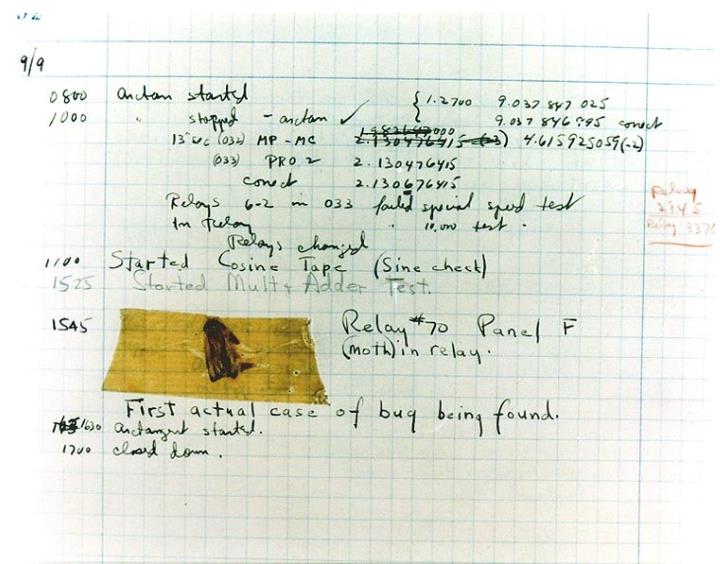 9/9
0800 antan started { 1.2700 9.037 847 025
1000 " stopped - antan ✓ 9.037 846 995 conect
13"uc (032) MP - MC 2.130476415 (-3) 4.615925059(-2)
(033) PRO 2 2.130476415
conect 2.130676415
Relays 6-2 in 033 failed special speed test
in relay " 10,000 test .
Relays changed
Relay
2145
Relay 3370
1100 Started Cosine Tape (Sine check)
1525 Started Mult+ Adder Test.
1545 Relay #70 Panel F
(moth) in relay.
First actual case of bug being found.
1630 antangent started.
1700 closed down .